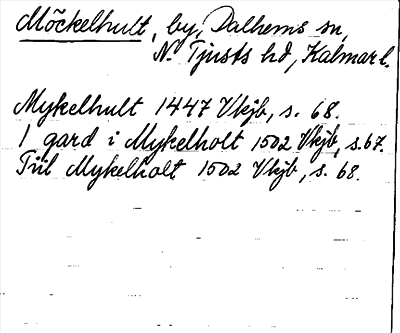 Möckelhult, by, Dalhems sn,
N. Tjusts hd, Kalmar l.
Mykelhult 1447 Vkjb, s. 68.
1 gard i Mykelholt 1502 Vkjb, s. 67.
Tiil Mykelholt 1502 Vkjb, s. 68.